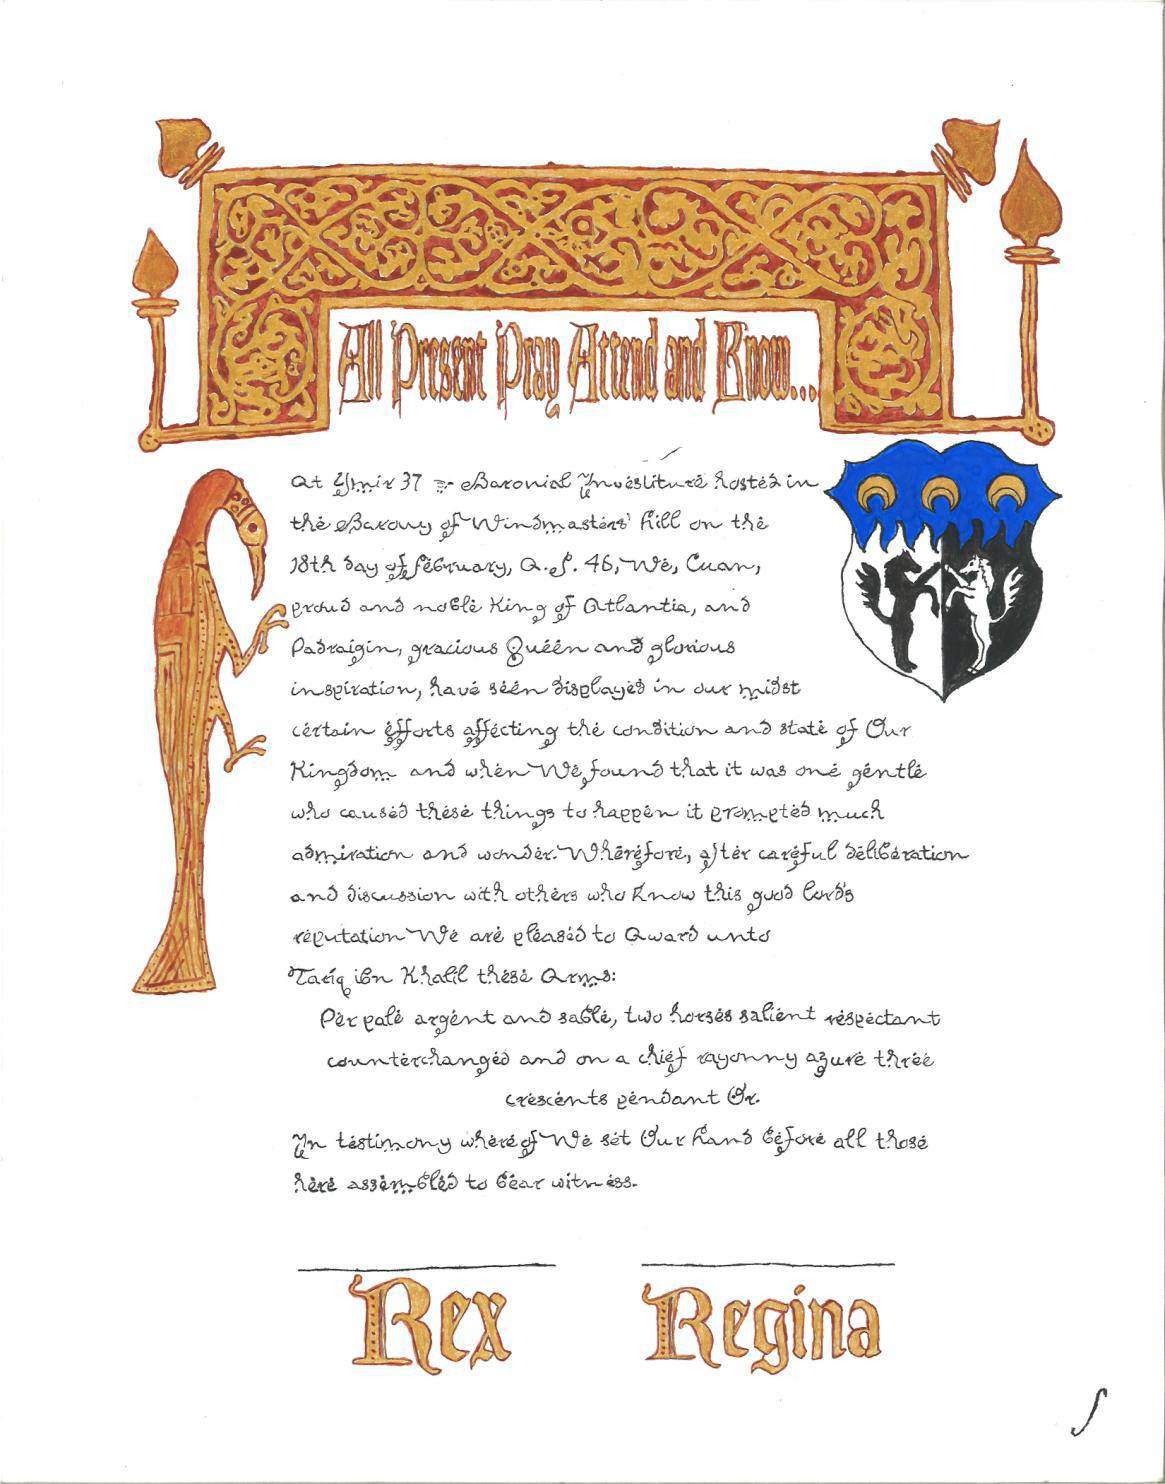 All Present Pray Attend and Know...
At Ymir 37 & Baronial Investiture hosted in
the Barony of Windmasters' Hill on the
18th day of February, A.S. 46, We, Cuan,
proud and noble King of Atlantia, and
Padraigin, gracious Queen and glorious
inspiration, have seen displayed in our midst
certain efforts affecting the condition and state of Our
Kingdom and when We found that it was one gentle
who caused these things to happen it prompted much
admiration and wonder. Wherefore, after careful deliberation
and discussion with others who know this good lord's
reputation We are pleased to Award unto
Tariq ibn Khalil these Arms:
Per pale argent and sable, two horses salient respectant
counterchanged and on a chief rayonny azure three
crescents pendant Or.
In testimony whereof We set Our hand before all those
here assembled to bear witness.
Rex Regina